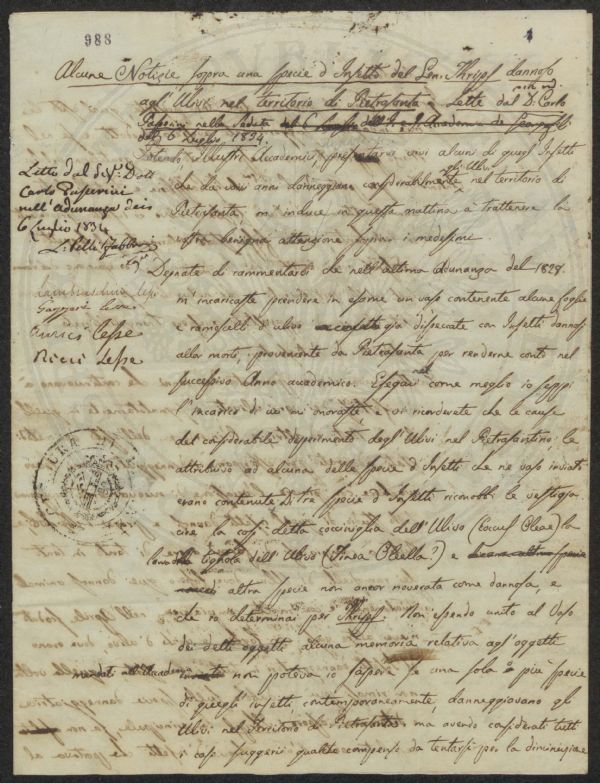 988
1
Alcune Notizie sopra una specie d'Insetto del Gen: Thrips dannoso
agl'Ulivi nel territorio di Pietrasanta Lette dal D. Carlo
Passerini nella Seduta del 6 Luglio dell' I. e R. Accademia dei Georgofili
del 6 Luglio 1834.
Letto dal Sig.r Dott.
Carlo Passerini
nell'adunanza dei
6 Luglio 1834
Illustri Accademici, vivi alcuni di quegl'Insetti
gli Ulivi
che da vari anni danneggiano considerabilmente nel territorio di
Pietrasanta, mi induce in questa mattina a trattenere la
vostra benigna attenzione sopra i medesimi.
Degnate di rammentarvi che nell'ultima adunanza del 1828
m'incaricaste prendere in esame un vaso contenente alcune foglie
e ramiscelli d'ulivo già disseccate con Insetti dannosi
allor morti, provenienti da Pietrasanta per renderne conto nel
successivo Anno accademico. Eseguii come meglio io seppi
l'incarico di cui mi onoraste, e vi ricorderete che le cause
del considerabile deperimento degl'Ulivi nel Pietrasantino, le
attribuivo ad alcuna delle specie d'Insetti che ne' vasi inviati
erano contenute. Di tre specie d'Insetti riconobbi le vestigia
cioè la così detta cocciniglia dell'Ulivo (Cocus Oleae) la
Tignola dell'Ulivo (Tinea Oleella?) e
altra specie non ancor noverata come dannosa, e
che io determinai per Thrips. Non essendo unito al Vaso
dei detti oggetti alcuna memoria relativa agl'oggetti
mandati all'Accademia non potevo io sapere se una sola o più specie
di quegli insetti contemporaneamente, danneggiavano gli
Ulivi nel Territorio di Pietrasanta, ma avendo considerati tutti
i casi suggerii qualche compenso da tentarsi per la diminuzione
Gaspari lesse
Enrico lesse
Ricci lesse